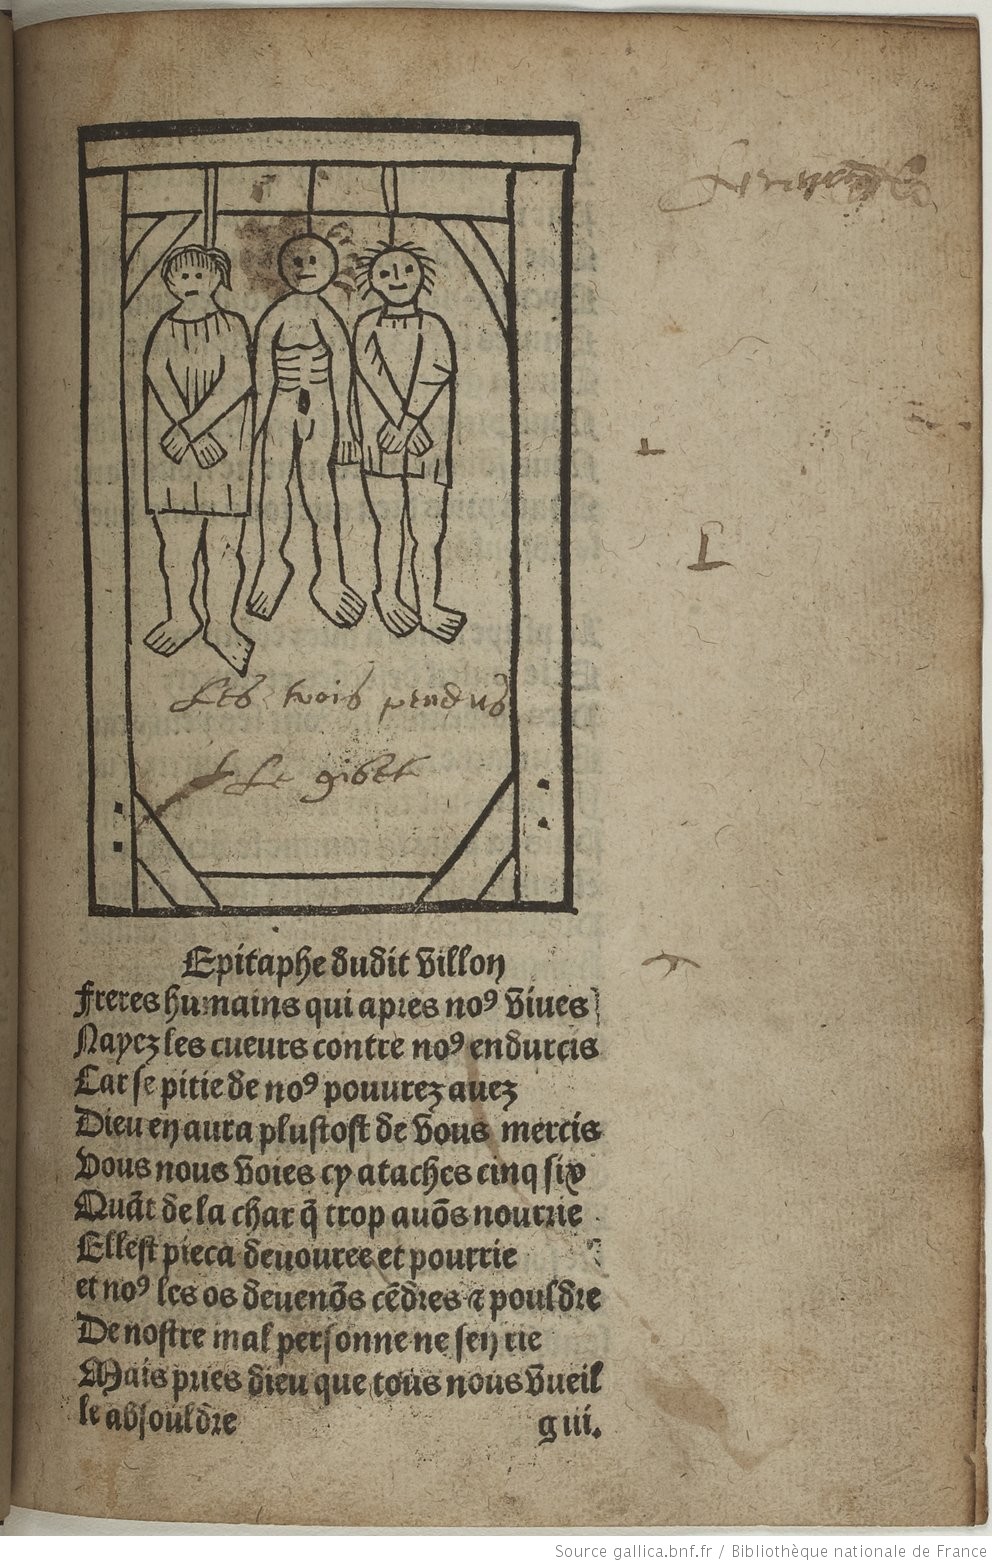 Les trois pendus
Le gibet
Epitaphe dudit villon
Freres humains qui apres noꝰ viues
Nayez les cueurs contre noꝰ endurcis
Car se pitie de noꝰ pouurez auez
Dieu en aura plustost de vous mercis
Vous nous voies cy ataches cinq six
Quāt de la char q̄ trop auōs nourrie
Ellest pieca deuouree et pourrie
et noꝰ les os deuenōs cēdres ⁊ pouldre
De nostre mal personne ne sen rie
Mais pries dieu que tous nous vueil
le absouldre g iii.
Source gallica.bnf.fr / Bibliothèque nationale de France